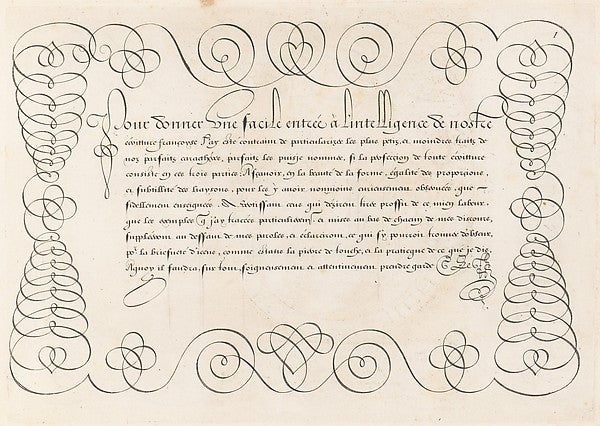 1
Pour donner une facile entrée à l'intelligence de nostre
escriture françoyse J'ay esté contraint de particularizer les plus petis, et moindres traits de
noz parfaits caracthères, parfaits les puisje nommer, si la perfection de toute escriture
consiste en ces trois parties, Asçavoir, en la beauté de la forme, égalité des proportions,
et subtilité des liaysons, pour les y avoir nonmoins curieusement observées, que
fidellement enseignées. Advertissant ceus qui dezirent tirer proffit de ce mien labeur,
que les exemples que j'ay traccées particulierement, et mises au bas de chacun de mes discours,
suppléeront au deffaut de mes paroles, et éclairciront, ce qui s'y pourroit trouver d'obscur,
pour la briefveté d'iceus, comme estants la pierre de touche, et la praticque de ce que je dis
Aquoy il faudra, sur tout, soigneusement et attentivement prendre garde